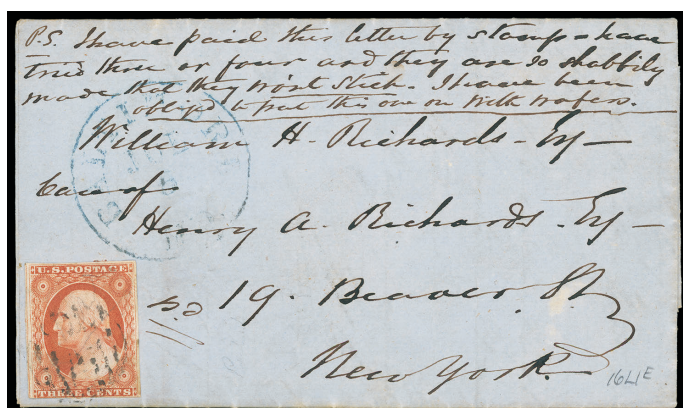 P.S. I have paid this letter by stamp - have
tried three or four and they are so shabbily
made that they wont stick. I have been
obliged to put this one on with wafers.
William H. Richards - Esq -
Care of
Henry A. Richards - Esq -
19. Beaver St.
New York.
U.S. POSTAGE
THREE CENTS
16L1E